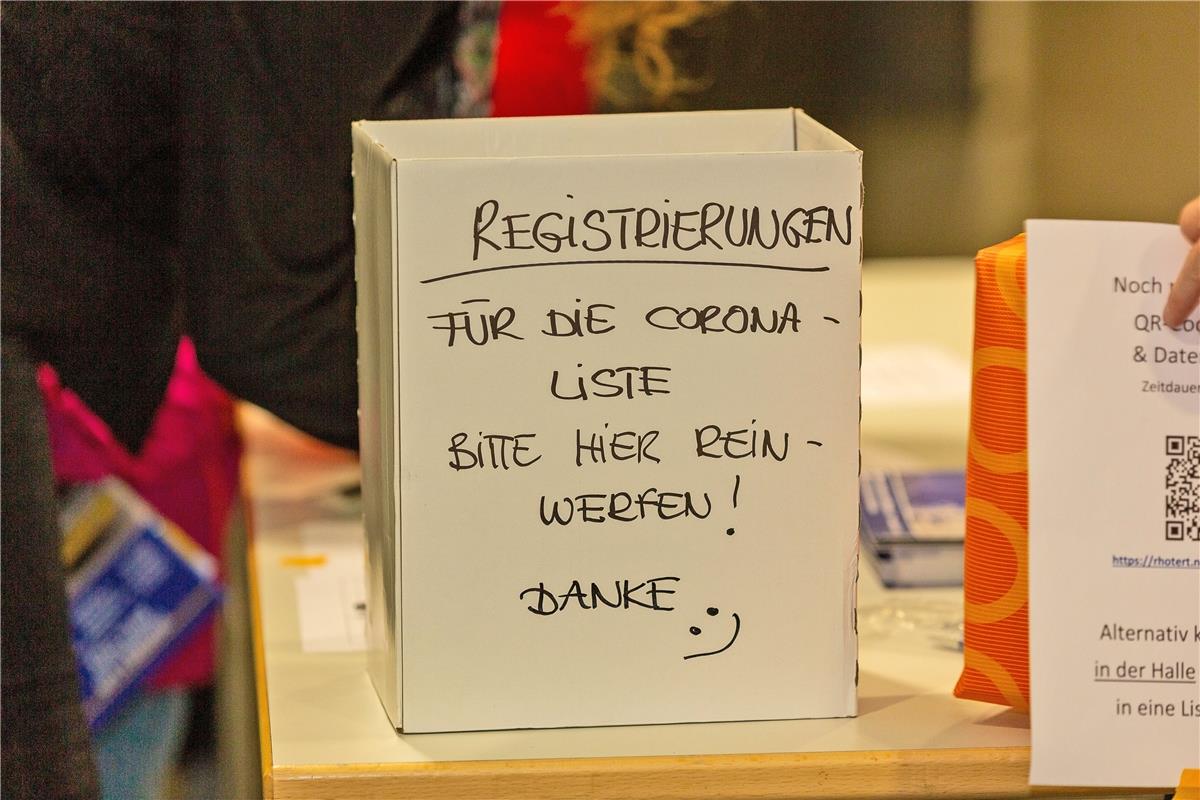 REGISTRIERUNGEN
FÜR DIE CORONA-
LISTE
BITTE HIER REIN-
WERFEN!
DANKE
Noch
& Date
Zeitdauer
https://rhotert.n
Alternativ k
in der Halle
in eine Lis